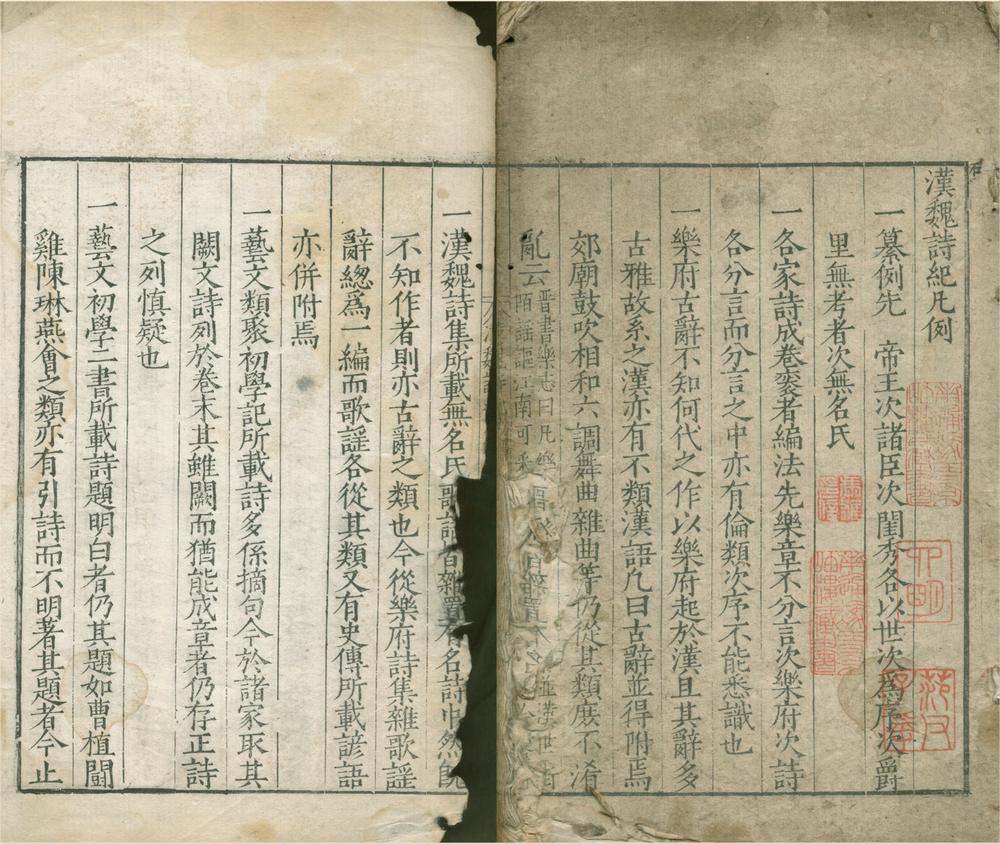 漢魏詩紀凡例
一纂例先　帝王次諸臣次閨秀各以世次爲序次爵
里無考者次無名氏
一各家詩成卷袠者編法先樂章不分言次樂府次詩
各分言而分言之中亦有倫類次序不能悉識也
一樂府古辭不知何代之作以樂府起於漢且其辭多
古雅故系之漢亦有不類漢語凡曰古辭並得附焉
郊廟鼓吹相和六調舞曲雜曲等仍從其類庶不淆
亂云
晉書樂志曰凡樂
陌謡謳江南可采
並漢世街
一漢魏詩集所載無名氏歌謡皆雜置名詩中然既
不知作者則亦古辭之類也今從樂府詩集雜歌謡
辭緫爲一編而歌謡各從其類又有史傳所載諺語
亦併附焉
一藝文類聚初學記所載詩多係摘句今於諸家取其
闕文詩列於卷末其雖闕而猶能成章者仍存正詩
之列慎疑也
一藝文初學二書所載詩題明白者仍其題如曹植鬬
雞陳琳燕會之類亦有引詩而不明著其題者今止